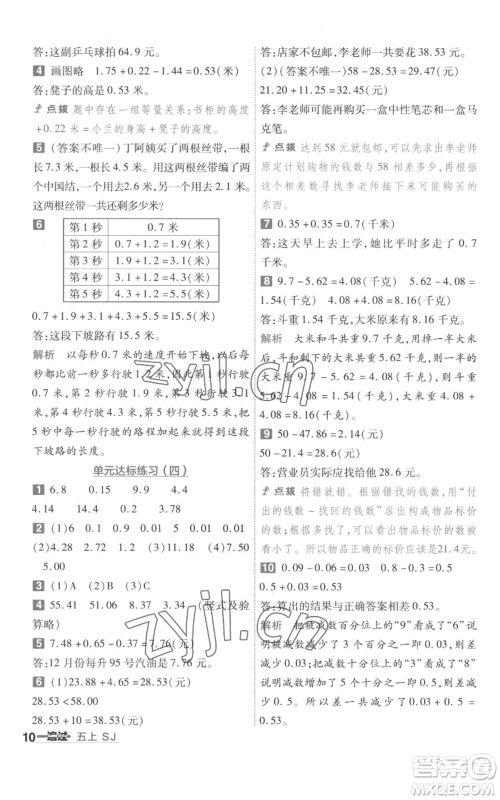 答:这副乒乓球拍 64.9 元。
4 画图略 1.96+0.22-1.65=0.53(米)
答:凳子的高是 0.53 米。
点拨 题中存在一组等量关系:书柜的高度
+0.22 米=小兰的身高+凳子的高度
5 (答案不唯一)丁阿姨买了两根丝带,一根
长 7.3 米,一根长 4.5 米。用这两根丝带编了两
个中国结,一个用去 2.8 米,一个用去 2.9 米。
这两根丝带一共还剩多少米?
6
第 1 秒 0.7 米
第 2 秒 0.7+1.2=1.9(米)
第 3 秒 1.9+1.2=3.1(米)
第 4 秒 3.1+1.2=4.3(米)
第 5 秒 4.3+1.2=5.5(米)
0.7+1.9+3.1+4.3+5.5=15.5(米)
答:这段下坡路有 15.5 米。
解析 以每秒 0.7 米的速度开始下坡,以后每
秒都比前一秒多行驶 1.2 米,即第 1 秒行驶
0.7 米,第 2 秒行驶 1.9 米,第 3 秒行驶 3.1 米,
第 4 秒行驶 4.3 米,第 5 秒行驶 5.5 米到达坡
底,所以每秒行驶的路程加起来就是这段
下坡路的长度。
单元达标练习(四)
1 6.8 0.15 9.9 4.4
4.14 0.2 0.38 4.4
2 (1)6 0.1 0.9 0.01 0.01
(2)2.28 0.39 (3)11.4 (4)7.50
5.00
3 (1)A (2)B (3)C
4 55.41 51.06 38.8 (竖式及验
算略)
5 7.48+0.65-0.37=7.76(元)
答:12 月份每升 95 号汽油是 7.76 元。
6 (1)23.88+4.65=28.53(元)
28.53<58.00
28.53+10=38.53(元)
答:店家不包邮,李老师一共要花 38.53 元。
(2)(答案不唯一)58-28.53=29.47(元)
21.20+11.25=32.45(元)
32.45>29.47
答:李老师可能再购买一盒中性笔芯和一盒马
克笔。
点拨 达到 58 元就包邮,可以先求出李老师
原定计划购物的钱数与 58 相差多少,再根据
相差数寻找李老师接下来可能购买的
东西。
7 0.35+0.35=0.7(千米)
答:这天早上去上学,她比平时多走 0.7
千米。
8 9.7-5.62=4.08(千克) 5.62-4.08=
1.54(千克) 9.7-1.54=8.16(千克)
答:斗重 1.54 千克,大米原来有 8.16 千克。
解析 大米和斗共重 9.7 千克,用去一半大米
后,斗和剩下的大米共重 5.62 千克,则一半的
大米重 9.7-5.62=4.08(千克),那么斗重
5.62-4.08=1.54(千克),大米原来有 9.7-
1.54=8.16(千克)。
9 50-47.86=2.14(元)
50-21.4=28.6(元)
答:营业员实际应找给他 28.6 元。
点拨 将错就错,根据“付出的钱数-找回的钱数”
求出看错后物品标价的
钱数,然后根据看错的小数点求出物品标价的
实际钱数。可以发现正确的标价应该是21.4元。
10 0.09-0.06=0.03 0.8-0.3=0.5
0.5+0.03=0.53
答:算出的结果与正确答案相差 0.53。
解析 把被减数百分位上的“9”看成了“6”,
被减数减少了 3 个百分之一,即减少了
0.03;把减数十分位上的“3”看成了“8”,减数
增加了 5 个十分之一,即增加了 0.5。被减数减少了 0.03,差就减少了
0.03;减数增加了 0.5,差就减少了 0.5,所以
差一共减少了 0.53。
10 一遍过 五上 SJ
zyjl.cn
zyjl.cn
答案圈
MXQE.COM